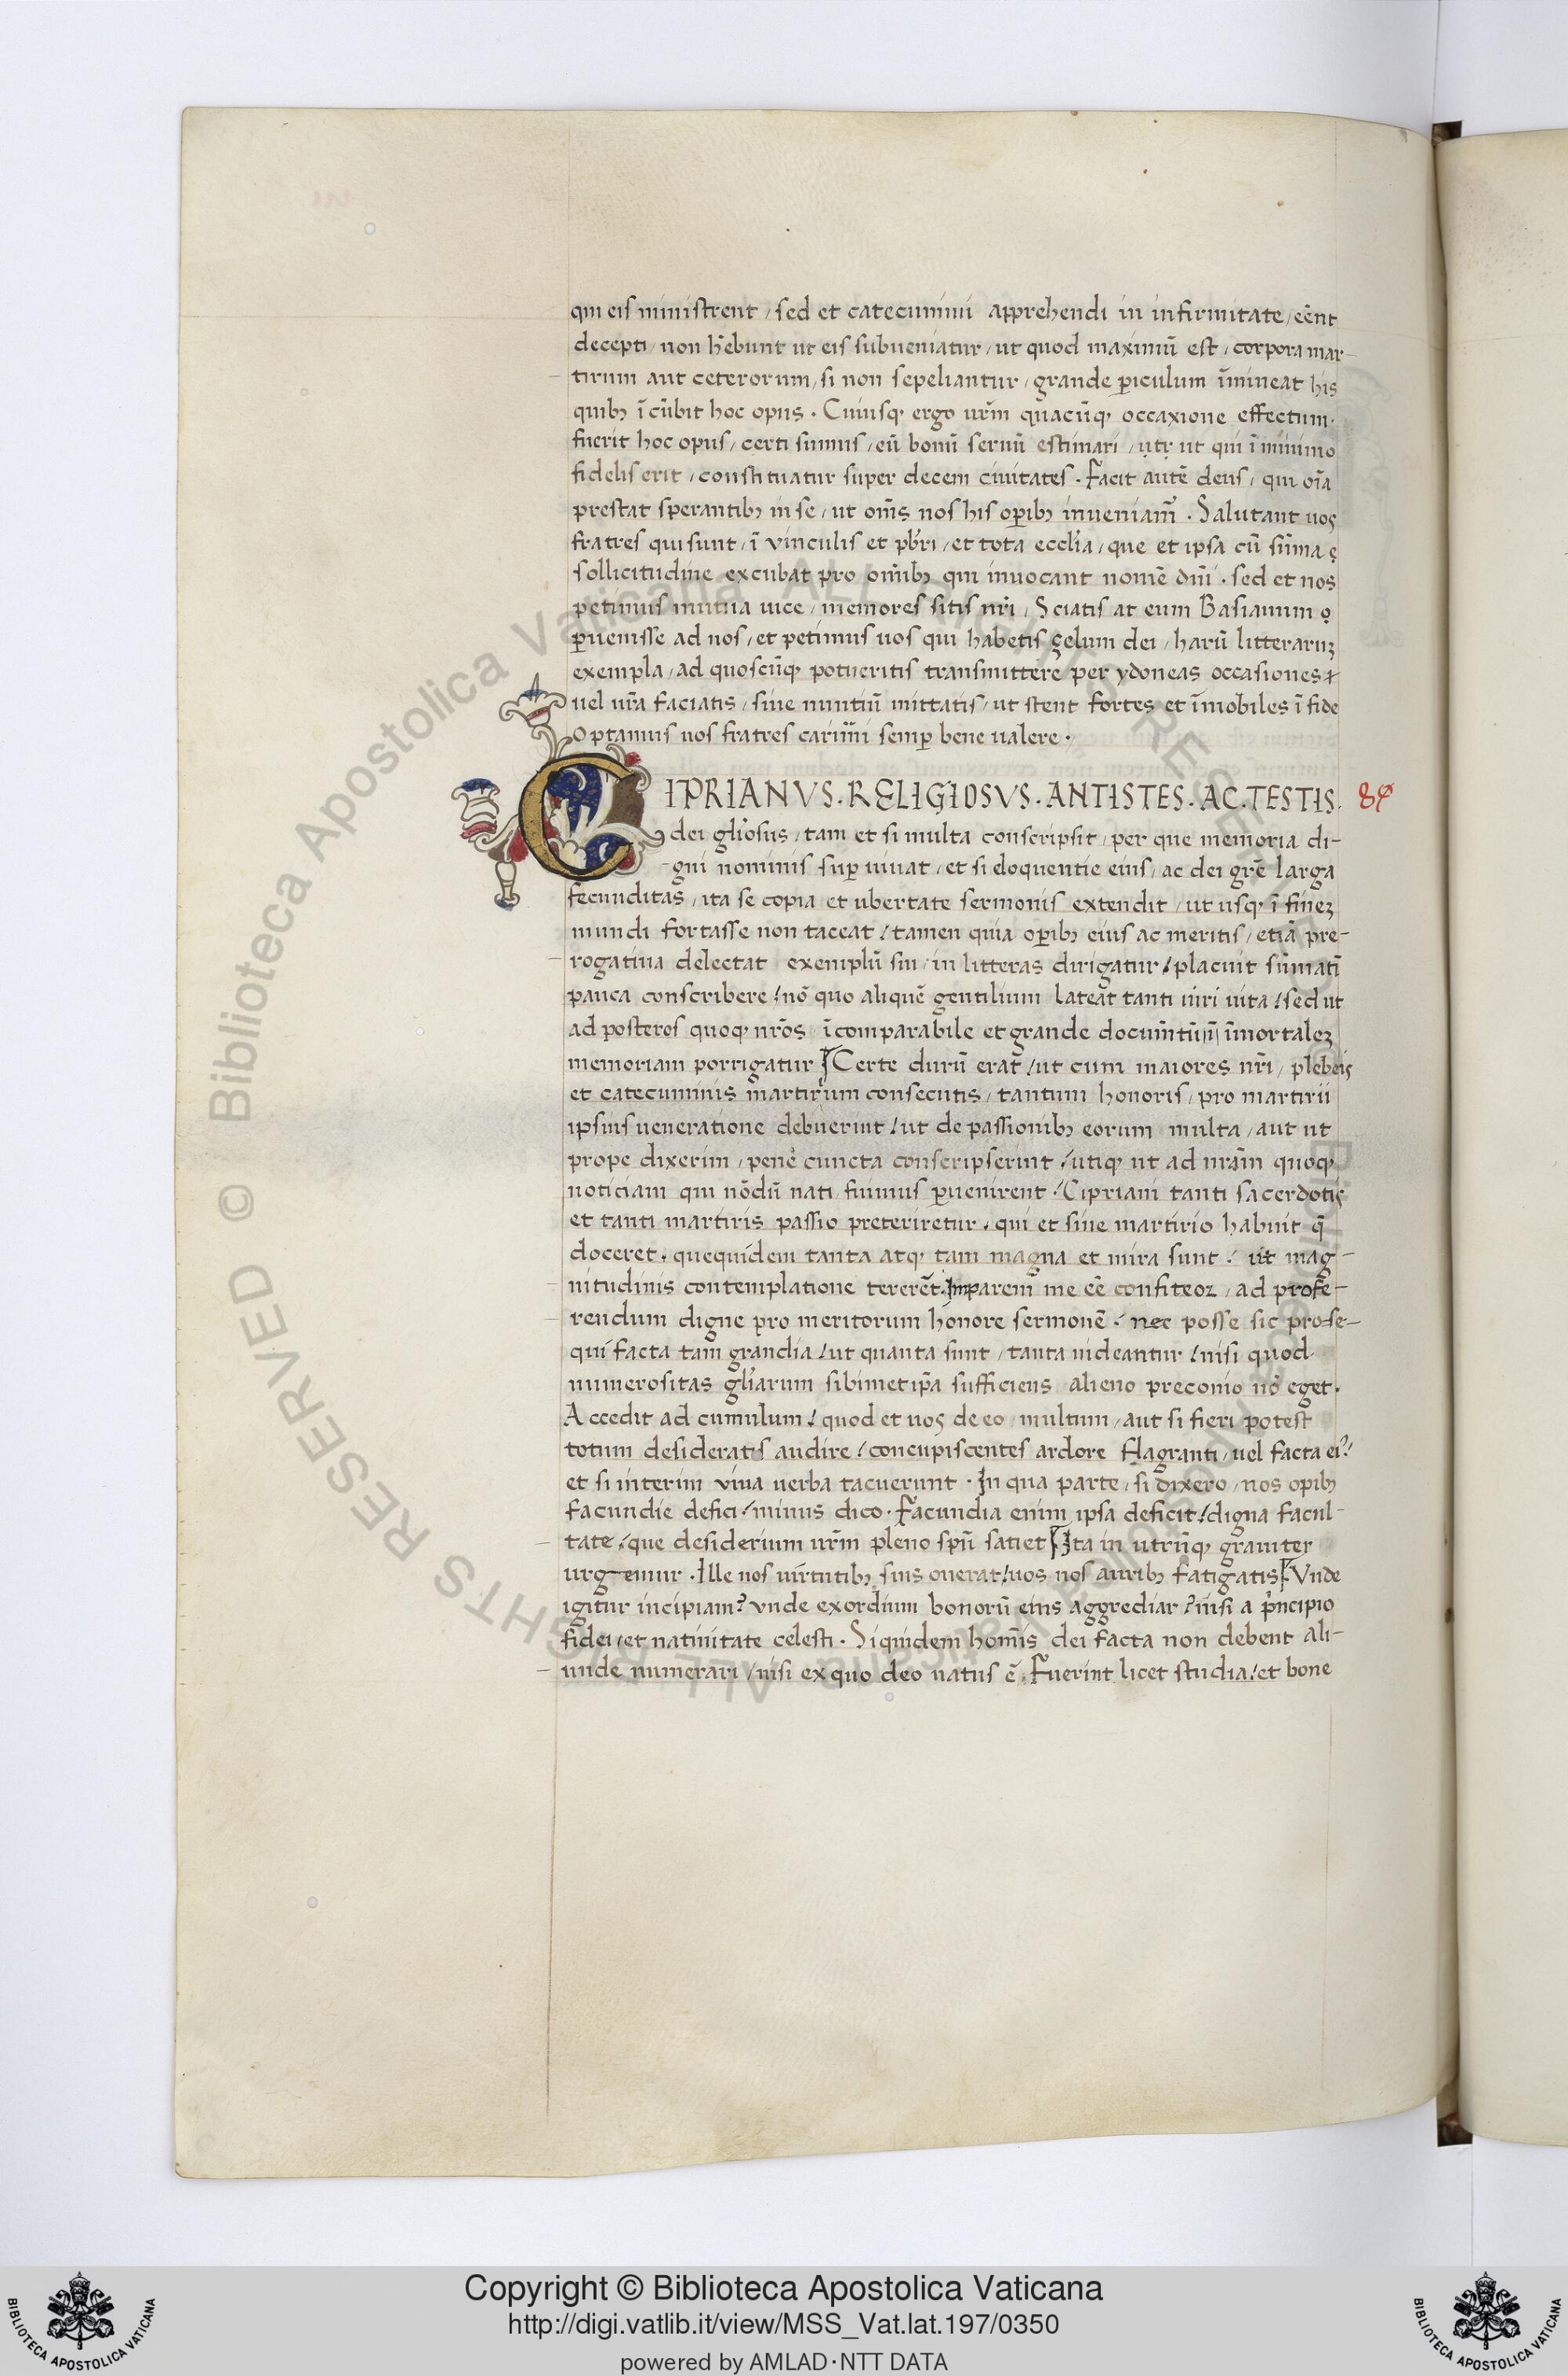 qui eis ministrent / sed et catecumini apprehendi in infirmitate / eēnt
decepti / non h̄ebunt ut eis subueniatur / ut quod maximū est / corpora mar-
tirum aut ceterorum / si non sepeliantur / grande ꝑiculum īmineat his
quibꝫ ī cūbit hoc opus . Cuiusqꝫ ergo ur̄m quacūqꝫ occaxione effectum.
fuerit hoc opus / certi sumus / eū bonū seruū estimari / ut qui ī minimo
fidelis erit / constituatur super decem ciuitates . Facit autē deus / qui oīa
prestat sperantibꝫ in se / ut om̄s nos his oꝑibꝫ inueniam̄ . Salutant uos
fratres qui sunt / ī vinculis et pb̄ri / et tota eccl̄ia / que et ipsa cū sūma
sollicitudine excubat pro om̄ibꝫ qui inuocant nomē dn̄i . sed et nos
petimus mutua uice / memores sitis nr̄i / Sciatis at eum Basianum
ꝑuenisse ad nos / et petimus uos qui habetis çelum dei / harū litterarūꝫ
exempla / ad quoscūqꝫ potueritis transmittere per ydoneas occasiones
uel ur̄a faciatis / siue nuntiū mittatis / ut stent fortes et īmobiles ī fide
Optamus uos fratres carim̄i semꝑ bene ualere .
CIPRIANVS . RELIGIOSVS . ANTISTES . AC . TESTIS .
dei gl̄iosus / tam et si multa conscripsit / per que memoria di-
gni nominis suꝑ uiuat / et si eloquentie eius / ac dei grē larga
fecunditas / ita se copia et ubertate sermonis extendit / ut usqꝫ ī fineꝫ
mundi fortasse non taceat / tamen quia oꝑibꝫ eius ac meritis / etiā pre-
rogatiua delectat exemplū sui / in litteras dirigatur / placuit sūmatī
pauca conscribere / nō quo aliquē gentilium lateat tanti uiri uita / sed ut
ad posteros quoqꝫ nr̄os ī comparabile et grande docum̄tū ī īmortaleꝫ
memoriam porrigatur Certe durū erat / ut cum maiores nr̄i / plebeis
et catecuminis martirum consecutis / tantum honoris / pro martirii
ipsius ueneratione debuerint / ut de passionibꝫ eorum multa / aut ut
prope dixerim / pene cuncta conscripserint / utiqꝫ ut ad nr̄am quoqꝫ
noticiam qui nōdū nati fuimus ꝑuenirent / Cipriani tanti sacerdotis
et tanti martiris passio preteriretur . qui et sine martirio habuit q̄
doceret . quequidem tanta atqꝫ tam magna et mira sunt / ut mag-
nitudinis contemplatione tererēt . Imparem me eē confiteor / ad profe-
rendum digne pro meritorum honore sermonē / nec posse sic prose-
qui facta tam grandia / ut quanta sunt / tanta uideantur / nisi quod
numerositas gl̄iarum sibimet ip̄a sufficiens alieno preconio nō eget .
Accedit ad cumulum / quod et uos de eo multum / aut si fieri potest
totum desideratis audire / concupiscentes ardore flagranti / uel facta ei᾿ /
et si interim viua uerba tacuerunt . In qua parte / si dixero / nos opibꝫ
facundie defici / minus dico . Facundia enim ipsa deficit / digna facul-
tate / que desiderium ur̄m pleno spū satiet Ita in utrūqꝫ grauiter
urgemur . Ille nos uirtutibꝫ suis onerat / uos nos auribꝫ fatigatis Vnde
igitur incipiam? vnde exordium bonorū eius aggrediar / nisi a p̄ncipio
fidei / et natiuitate celesti . Siquidem hom̄is dei facta non debent ali-
unde numerari / nisi ex quo deo natus ē . Fuerint licet studia / et bone
Copyright © Biblioteca Apostolica Vaticana
http://digi.vatlib.it/view/MSS_Vat.lat.197/0350
powered by AMLAD·NTT DATA
BIBLIOTECA APOSTOLICA VATICANA
BIBLIOTECA APOSTOLICA VATICANA
© Biblioteca Apostolica Vaticana ALL RIGHTS RESERVED